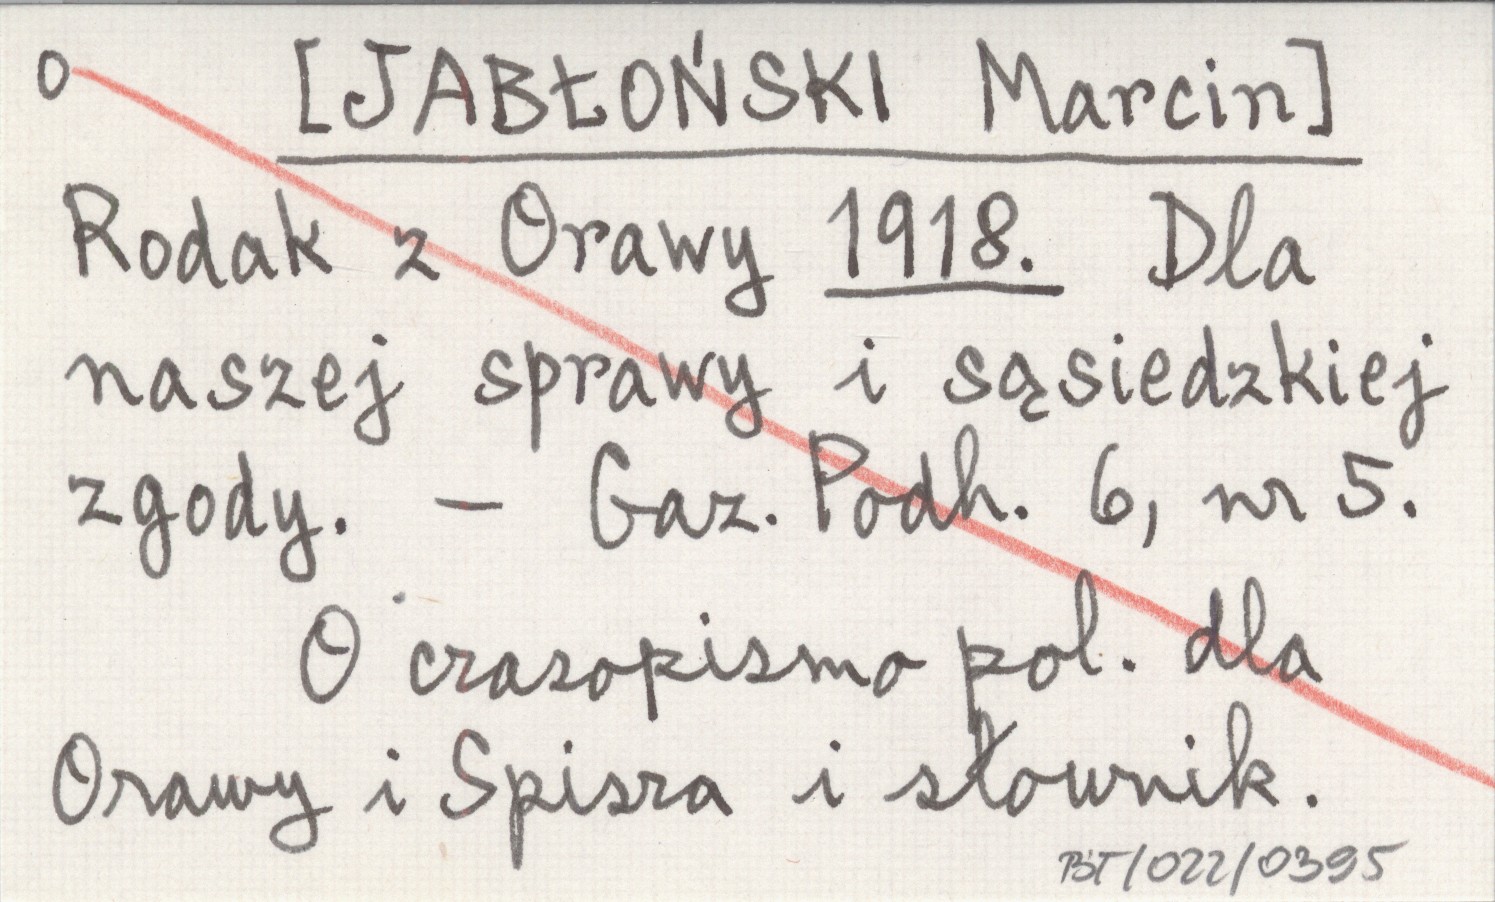 O [JABŁOŃSKI Marcin]
Rodak z Orawy 1918. Dla
naszej sprawy i sąsiedzkiej
zgody. – Gaz. Podh. 6, nr 5.
O czasopismo pol. dla
Orawy i Spisza i słownik.
BT/022/0395